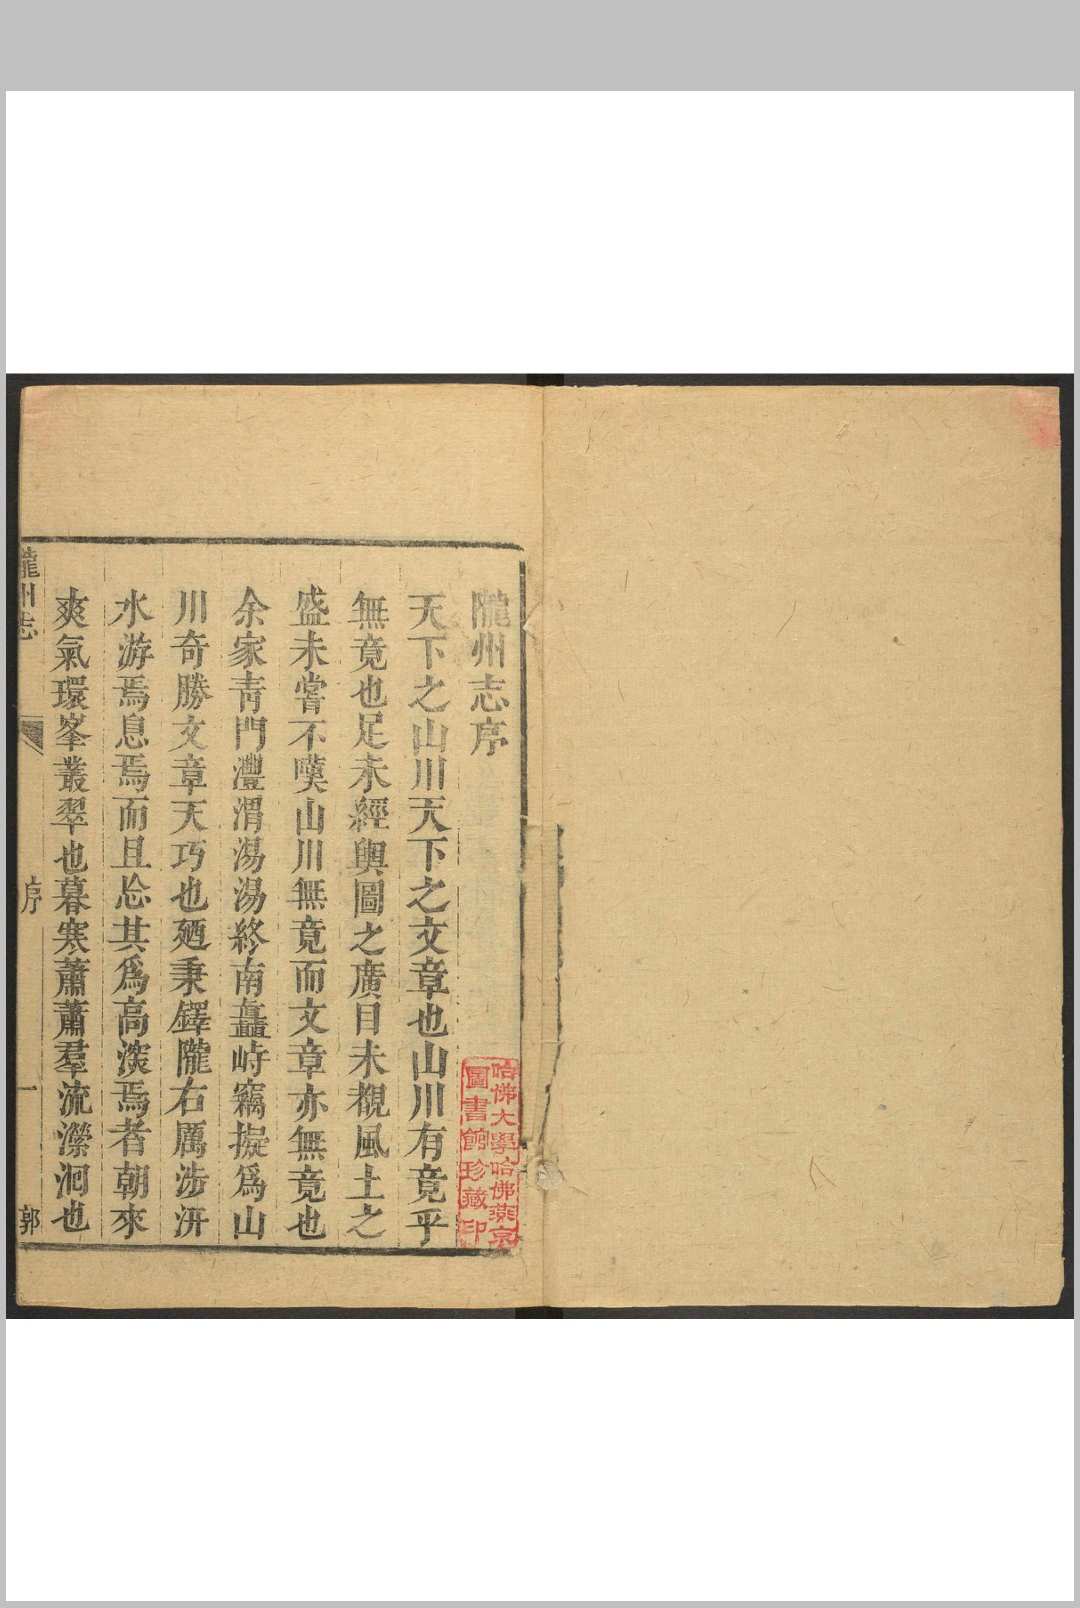 隴州志序
天下之山川天下之文章也山川有竟乎
無竟也足未經輿圖之廣目未覩風土之
盛未嘗不嘆山川無竟而文章亦無竟也
余家青門灃渭湯湯終南矗峙竊擬爲山
川奇勝文章天巧也廼秉鐸隴右厲涉汧
水游焉息焉而且忩其爲高深焉者朝來
爽氣環峯叢翠也暮寒蕭蕭羣流濴洄也
隴州志
序
一
郭
哈佛大學哈佛燕京
圖書館珍藏印